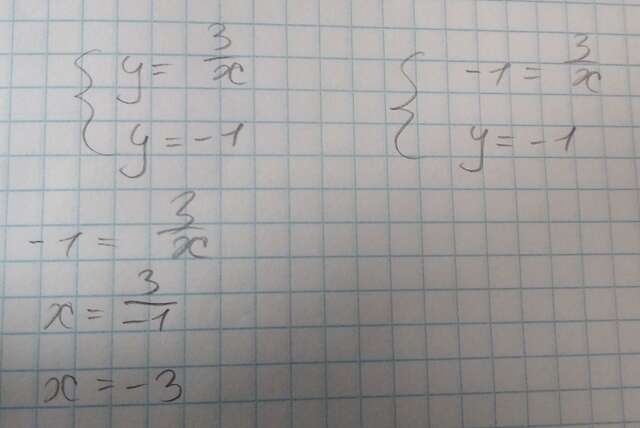 { y = 3/x
y = -1
{ -1 = 3/x
y = -1
-1 = 3/x
x = 3/-1
x = -3